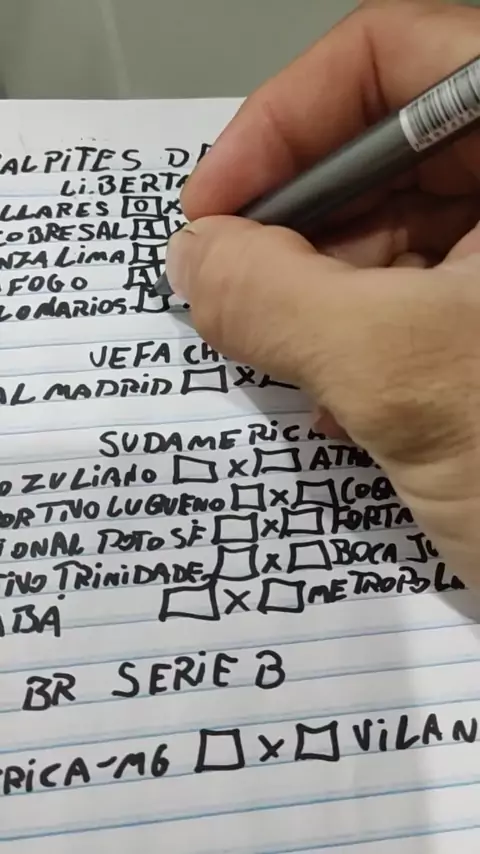 ALPITES D
LiBERTA
LLARES 0 X
COBRESAL 1 X
NZA LIMA 1
AFOGO 1
LONARIOS
UEFA CH
AL MADRID X
SUDAMERICA
O ZULIANO X AT
ORTIVO LUGUENO X COQ
IONAL POTOSÍ X FORTA
TIVO TRINIDADE X BOCA JU
ABÁ X METROPOL
BR SERIE B
RICA-MG X VILAN